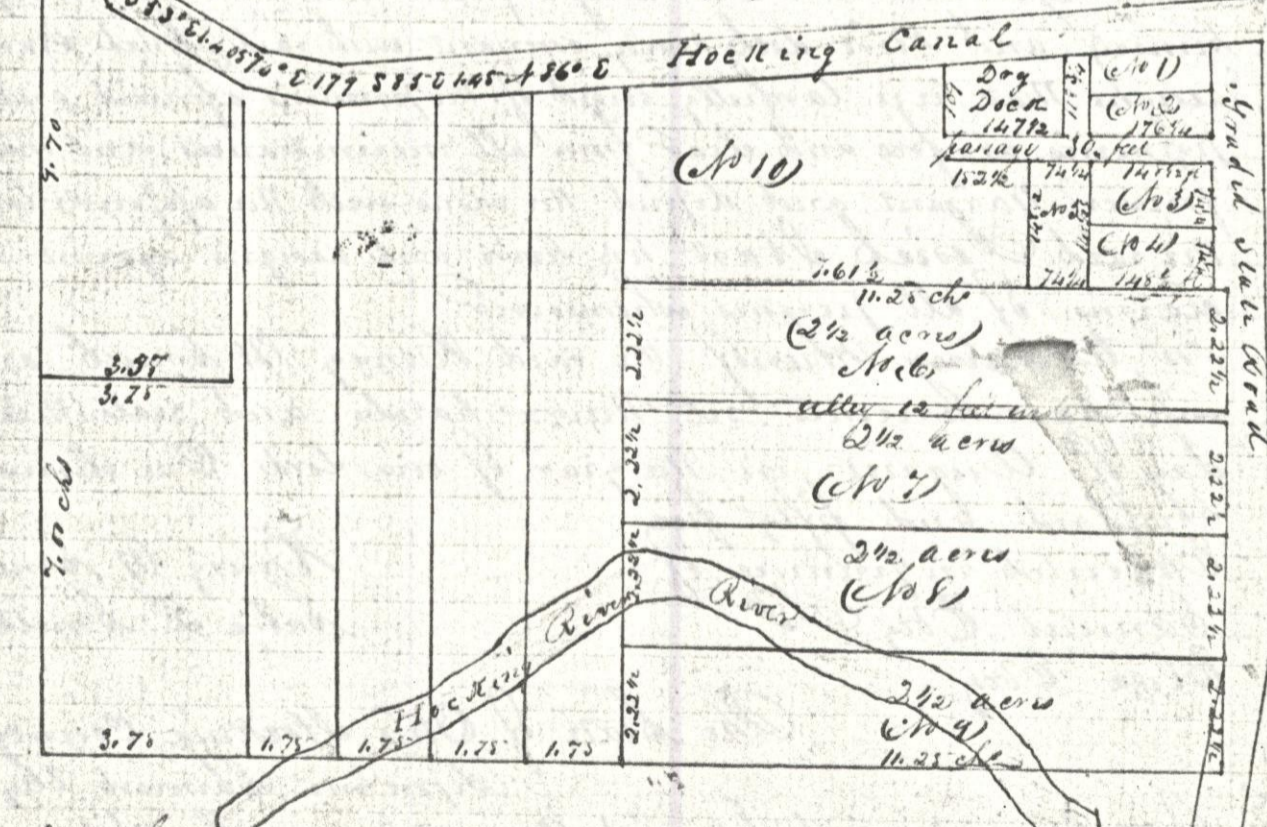 S 85 E 1.45 N 86° E
Hocking Canal
Dry
Dock
147½
(No 1)
(No 2)
176¼
passage 30 feet
152½
74¼
(No 3)
No 5
(No 4)
74¼
148½ ft
Graded State Road
(No 10)
1.61½
9.70
3.95
3.75
7.00 chs
11.25 chs
(2½ acres)
No 6
2.22½
2.22½
alley 12 feet
2½ acres
(No 7)
2.22½
2.22½
2½ acres
(No 8)
2.23½
Hocking River
River
2½ acres
(No 9)
11.25 chs
2.22½
2.22½
3.75
1.75
1.75
1.75
1.75